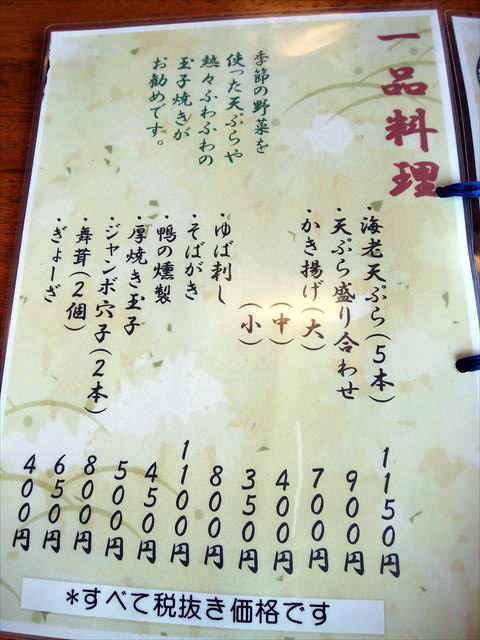 一品料理
季節の野菜を
使った天ぷらや
熱々ふわふわの
玉子焼きが
お勧めです。
・海老天ぷら(5本) 1150円
・天ぷら盛り合わせ 900円
・かき揚げ(大) 700円
(中) 400円
(小) 350円
・ゆば刺し 800円
・そばがき 1100円
・鴨の燻製 450円
・厚焼き玉子 500円
・ジャンボ穴子(2本) 800円
・舞茸(2個) 650円
・ぎょーざ 400円
*すべて税抜き価格です